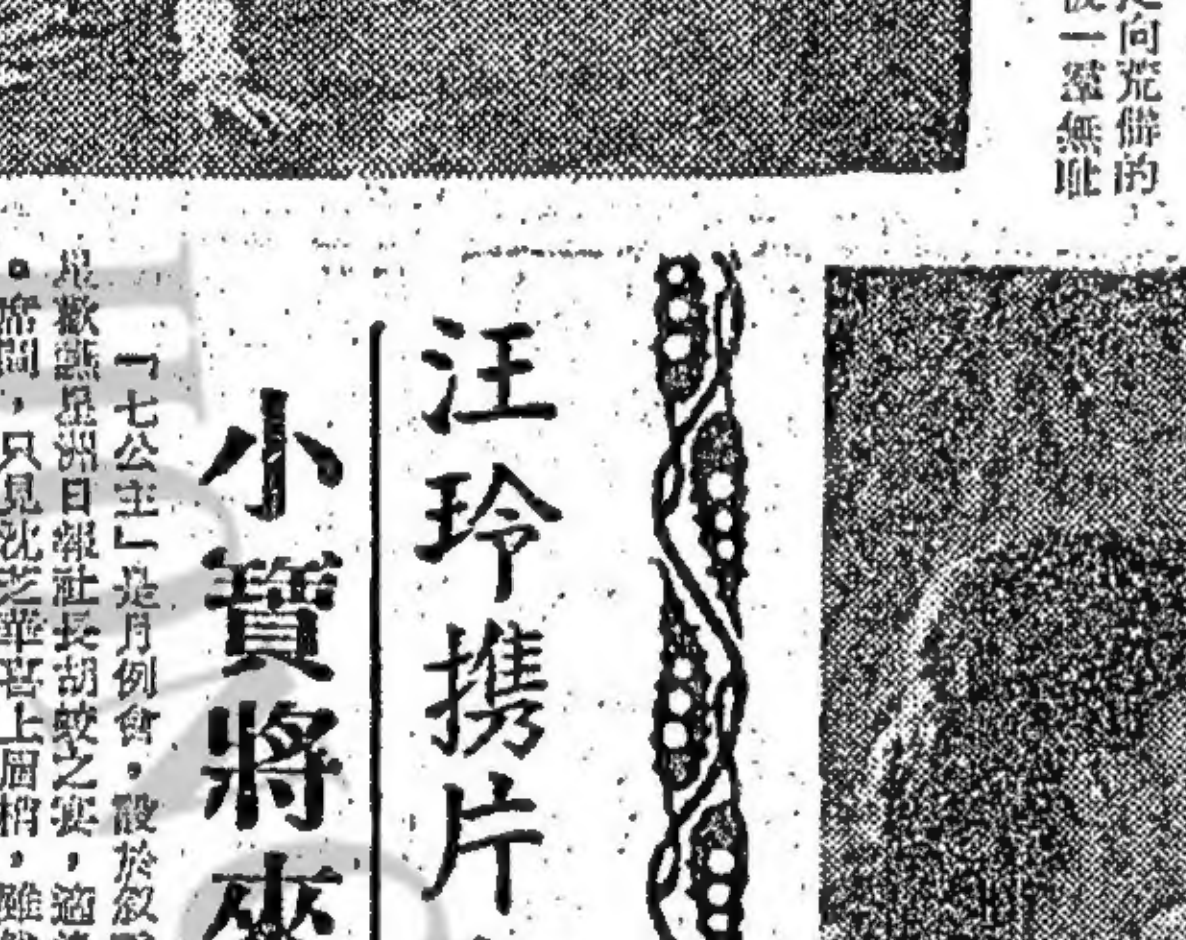 向荒僻的
一羣無耻
汪玲携片
小寶將來
「七公主」是月例會,設於叙
歡讌星洲日報社長胡蛟之宴,適
。席間,只見沈芝華喜上眉梢,雖